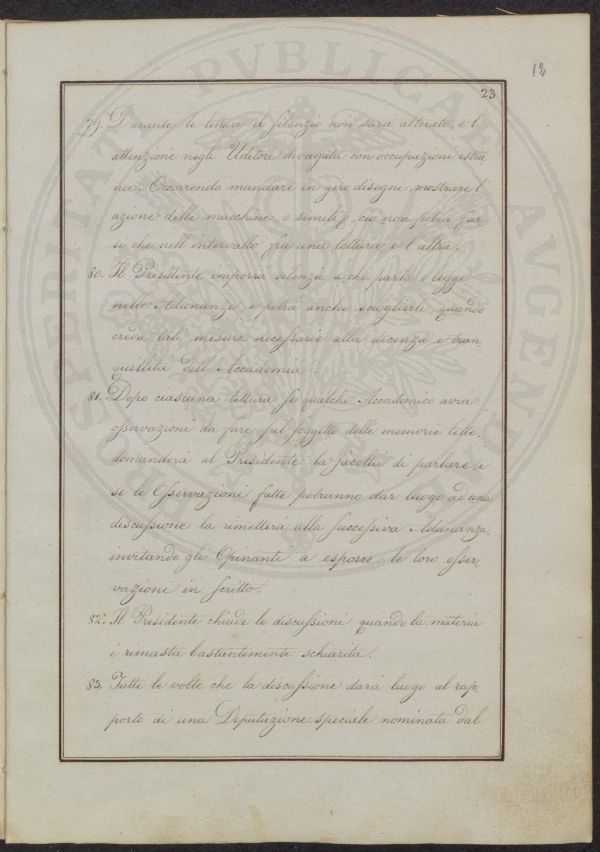 12
23
79. Durante le letture il silenzio non sarà alterato, e l'
attenzione negli Uditori divagata con occupazioni estra
nee. Occorrendo mandare in giro disegni, mostrare l'
azione delle macchine, o simili, ciò non potrà far-
si che nell'intervallo fra una lettura e l'altra.
80. Il Presidente imporrà silenzio a chi parla o legge
nelle Adunanze, e potrà anche scioglierle, quando
creda tali misure necessarie alla decenza e tran-
quillità dell'Accademia.
81. Dopo ciascuna lettura se qualche Accademico avrà
osservazioni da fare sul soggetto delle memorie lette,
domanderà al Presidente la facoltà di parlare, e
se le Osservazioni fatte potranno dar luogo ad una
discussione la rimetterà alla successiva Adunanza,
invitando gli Opinanti a esporre le loro osser-
vazioni in scritto.
82. Il Presidente chiude le discussioni quando la materia
è rimasta bastantemente schiarita.
83. Tutte le volte che la discussione darà luogo al rap-
porto di una Deputazione speciale nominata dal
PROSPERITATI PVBLICAE AVGENDAE